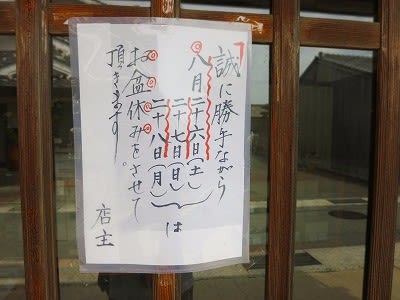 誠に勝手ながら
八月二十六日(土)
二十七日(日)
二十八日(月)
は
お盆休みをさせて
頂きます。
店主